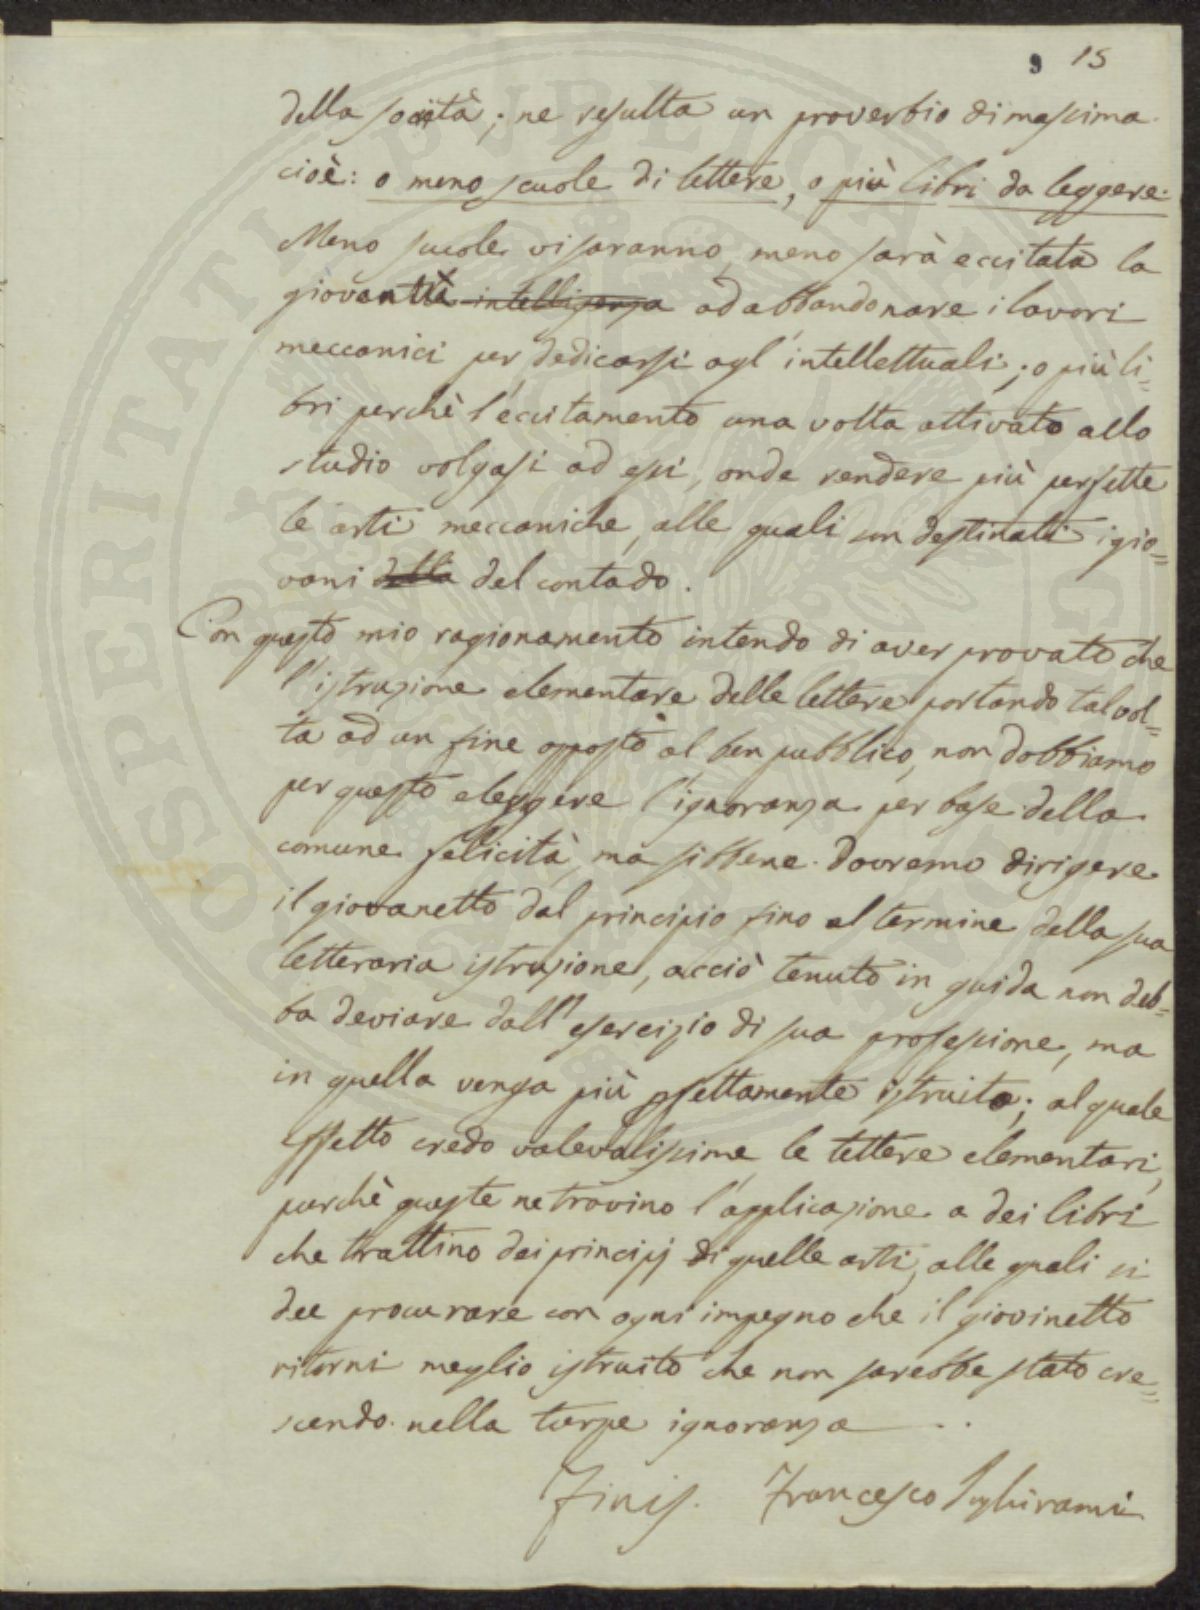 9 15
della società; ne resulta un proverbio di massima
cioè: o meno scuole di lettere, o più libri da leggere.
Meno scuole vi saranno, meno sarà eccitata la
gioventù intelligenza ad abbandonare i lavori
meccanici per dedicarsi agl'intellettuali; o più li=
bri perchè l'eccitamento una volta attivato allo
studio volgasi ad essi, onde rendere più perfette
le arti meccaniche, alle quali son destinati i gio=
vani della del contado.
Con questo mio ragionamento intendo di aver provato che
l'istruzione elementare delle lettere portando talvol=
ta ad un fine opposto al ben pubblico, non dobbiamo
per questo eleggere l'ignoranza per base della
comune felicità, ma sibbene dovremo dirigere
il giovanetto dal principio fino al termine della sua
letteraria istruzione, acciò tenuto in guida non deb=
ba deviare dall'esercizio di sua professione, ma
in quella venga più pfettamente istruito; al quale
effetto credo valevolissime le lettere elementari,
purchè queste ne trovino l'applicazione a dei libri
che trattino dei principj di quelle arti, alle quali si
dee procurare con ogni impegno che il giovinetto
ritorni meglio istruito che non sarebbe stato cre=
scendo nella turpe ignoranza
Finis. Francesco Inghirami
PROSPERITATI PUBLICAE